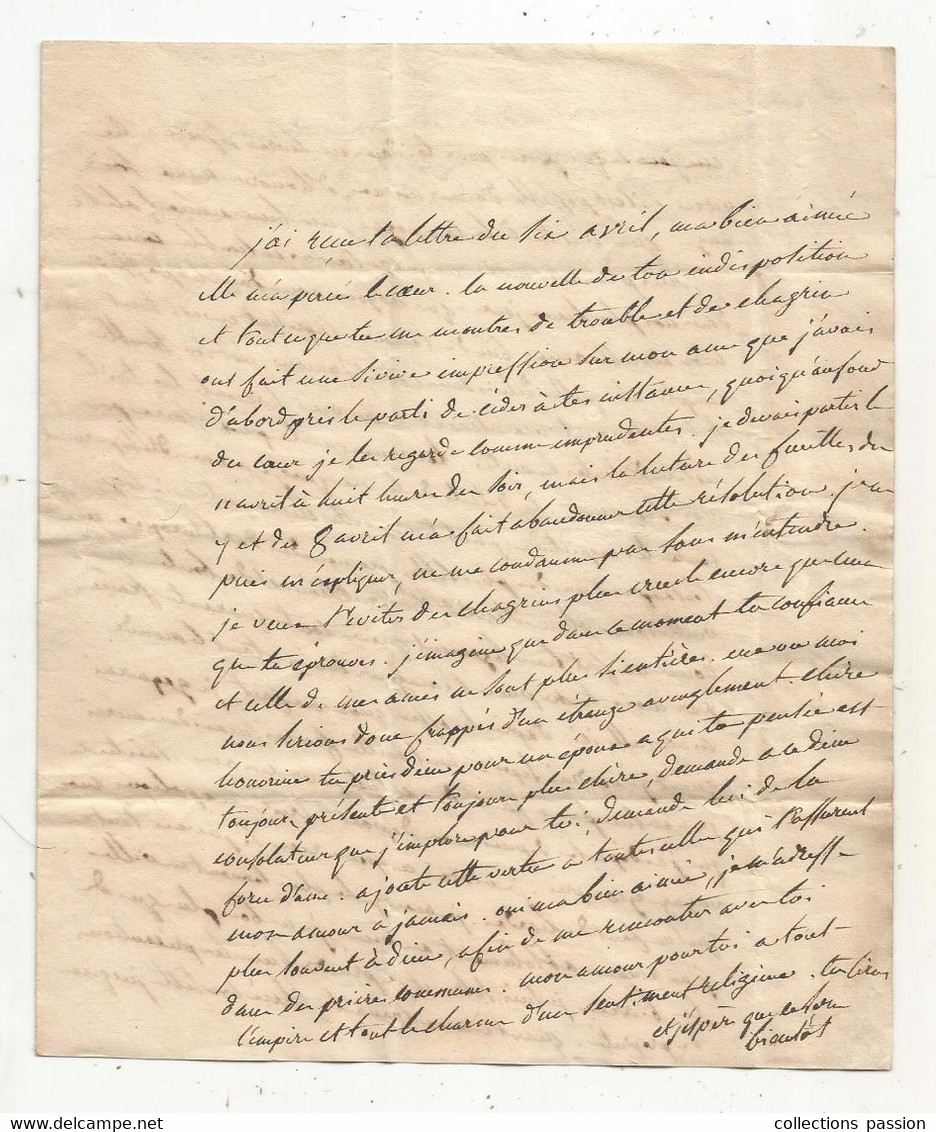 j'ai reçu ta lettre du six avril, ma bien aimée
elle m'a percé le cœur. la nouvelle de ton indisposition
et tout ce que tu me montres de trouble et de chagrin
ont fait une si vive impression sur mon ame que j'avais
d'abord pris le parti de céder à tes instances, quoiqu'au fond
du cœur je les regarde comme imprudentes. je devais partir le
11 avril à huit heures du soir, mais la lecture des feuilles du
7 et du 8 avril m'a fait abandonner cette résolution. je ne
puis m'expliquer, ne me condamne pas sans m'entendre.
je veux t'éviter des chagrins plus cruels encore que ceux
que tu éprouves. j'imagine que dans ce moment ta confiance
et celle de mes amis ne sont plus si entières. eux ou moi
nous serions donc frappés d'un étrange aveuglement. chère
honorine tu pries dieu pour un époux a qui ta pensée est
toujours présente et toujours plus chère, demande a ce dieu
consolateur que j'implore pour toi, demande lui de la
force d'ame. ajoute cette vertu a toutes celles qui t'assurent
mon amour à jamais. oui ma bien aimée, je m'adresse
plus souvent à dieu, afin de me rencontrer avec toi
dans des prières communes. mon amour pour toi a tout
l'empire et tout le charme d'un sentiment religieux. tu liras
et j'espère que ce sera
bientôt
collections passion